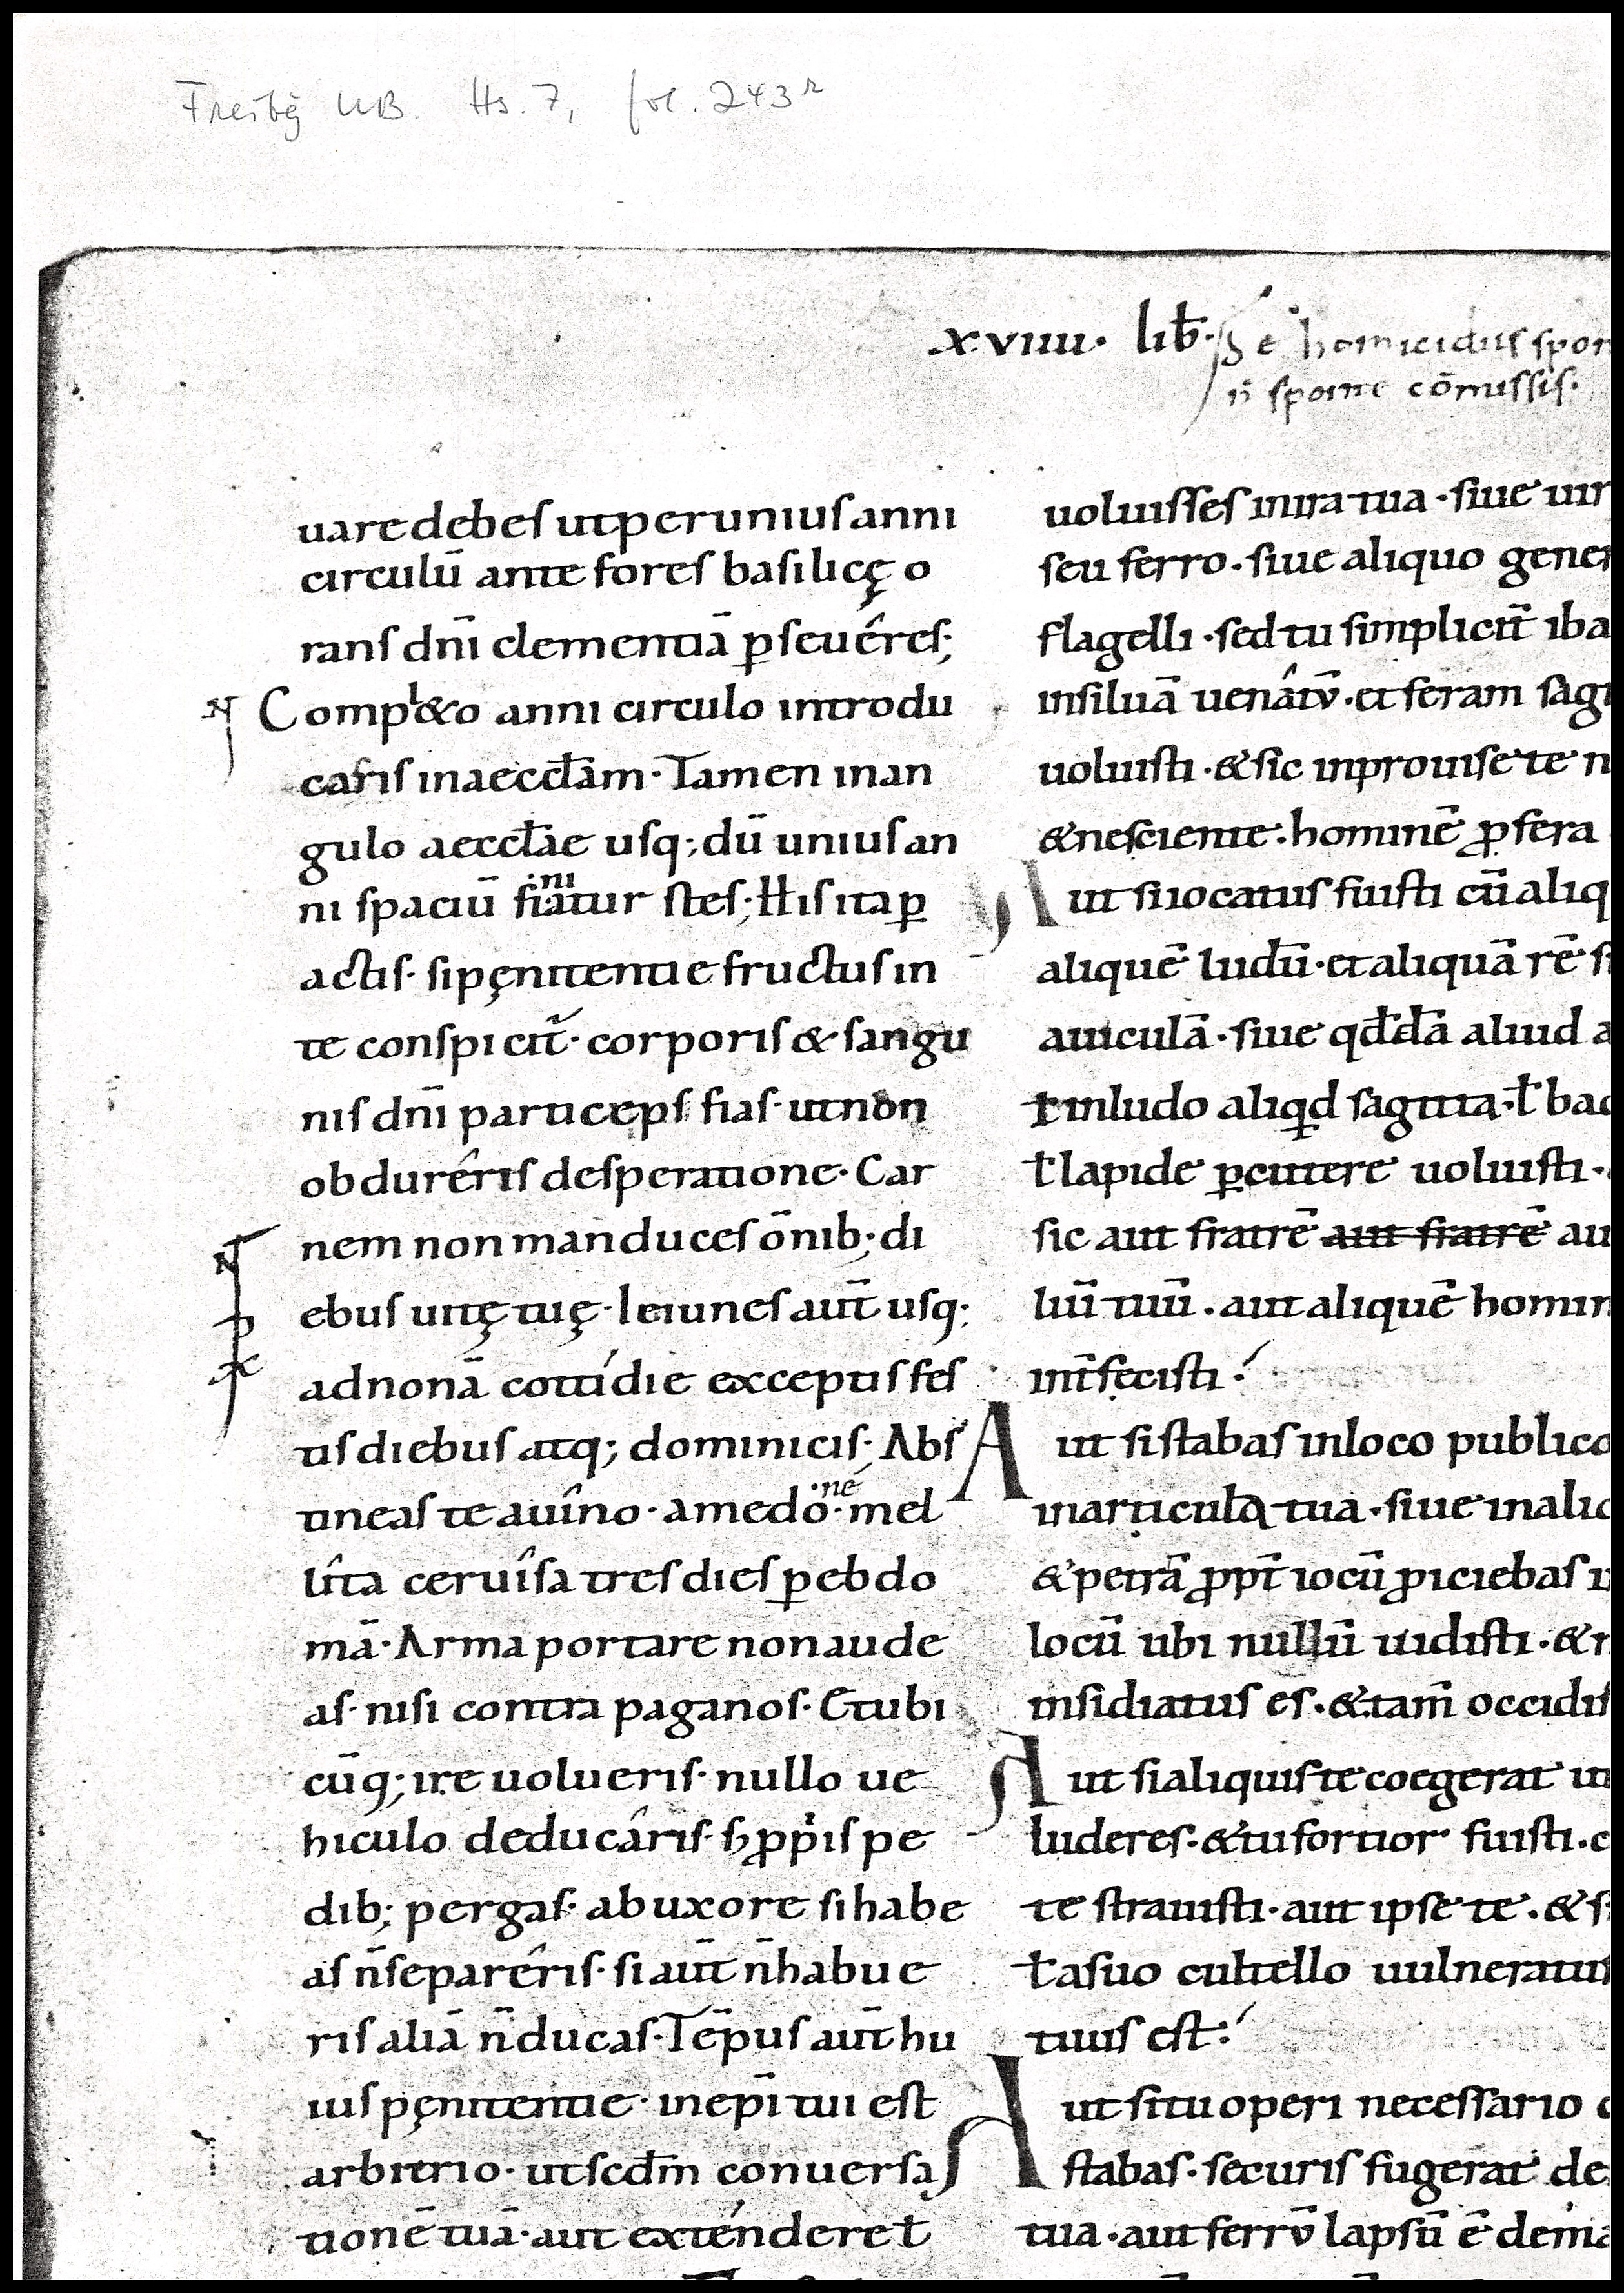 Freibg UB. Hs. 7, fol. 243r
xviiii· lib̅·
De homicidiis spon
n̄ sponte cōmissis·
uare debes ut per unius anni
circulū ante fores basilicę o
rans dn̄i clementiā p̱seuêres;
Compl&o anni circulo introdu
caris in aeccl̄am· Tamen in an
gulo aeccl̄ae usq; dū unius an
ni spaciū fiatur stes; His ita p̱
ni
actis· si pęnitentie fructus in
te conspicit̄· corporis & sangu
nis dn̄i particeps fias· ut non
obdurêris desperatione· Car
nem non manduces ōnib; di
ebus uitę tuę· Ieiunes aut̄ usq;
ad nonā cottídie exceptis fes
tis diebus atq; dominicis· Abs
tineas te a uîno· a medo· mel
·né
lîta ceruîsa tres dies p̱ ebdo
mā· Arma portare non aude
as· nisi contra paganos· Et ubi
cūq; ire uolueris· nullo ue
hiculo deducâris· sꝫ ꝓpriis pe
dib; pergas· ab uxore si habe
as n̄ separêris· si aut̄ n̄ habue
ris aliā n̄ ducas· Tēpus aut̄ hu
ius pęnitentie· in ep̄i tui est
arbitrio· ut scd̄m conuersa
tionē tuā· aut exténdere ł
uoluisses in ira tua· siue uir
seu ferro· siue aliquo gener
flagelli· sed tu simplicit̄ iba
in siluā uenâtū· et feram sagi
uoluisti· & sic inprouise te n
& nesciente· hominē ꝓ fera
Aut si iocatus fuisti cū aliq
aliquē ludū· et aliquā rē si
auiculā· siue qd̄dā aliud a
ł in ludo aliqd sagitta· ł bac
ł lapide p̱cutere uoluisti·
sic aut fratrē aut fratrē au
liū tuū· aut aliquē homin
int̄fecisti?
Aut si stabas in loco publico
in articula tua· siue in alic
& petrā ꝓpt̄ iocū ꝓiciebas i
locū ubi nullū uidisti· & n
insidiatus es· & tam̄ occidis
Aut si aliquis te coegerat ut
luderes· & tu fortior fuisti· c
te strauisti· aut ipse te· & si
ł a suo cultello uulneratus
tuus est?
Aut si tu operi necessario
stabas· securis fugerat de
tua· aut ferrū lapsū ē de ma